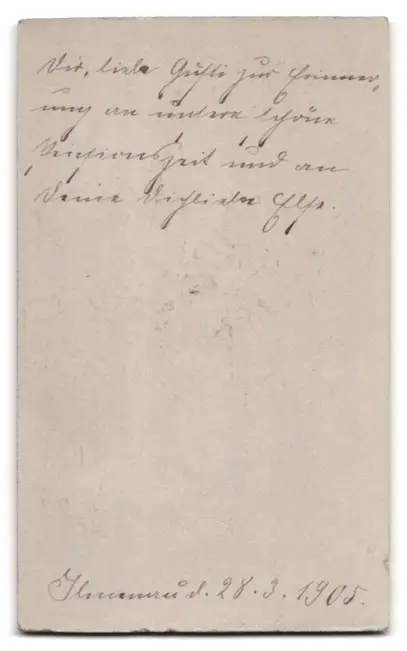 Dir, liebe Gusti zur Erinner,
ung an unsere schöne
Pensionszeit und an
Deine Dichliebe Else.
Ilmenau d. 28.3.1905.